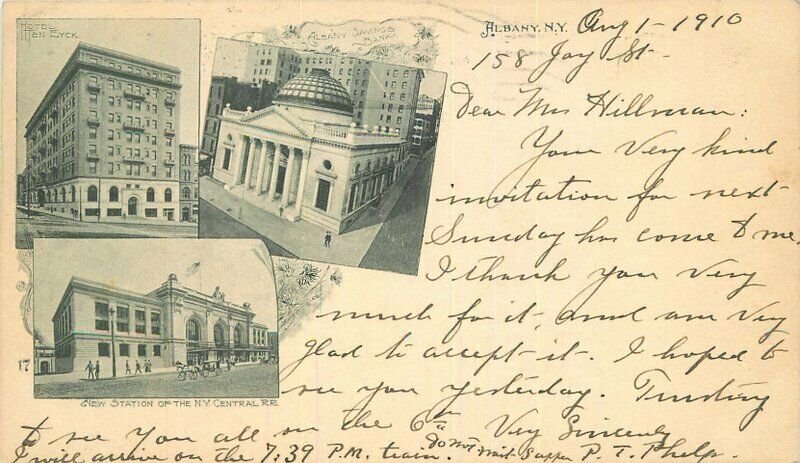 HOTEL
TEN EYCK.
ALBANY SAVINGS
BANK
ALBANY, N.Y. Aug 1-1910
158 Jay St-
Dear Mrs Hillman:
Your very kind
invitation for next
Sunday has come to me,
I thank you very
much for it, and am very
glad to accept it. I hoped to
see you yesterday. Trusting
to see you all on the 6th Very Sincerely
I will arrive on the 7:39 P.M. train. Do not wait supper P. T. Phelp.
17
NEW STATION OF THE N.Y. CENTRAL R.R.